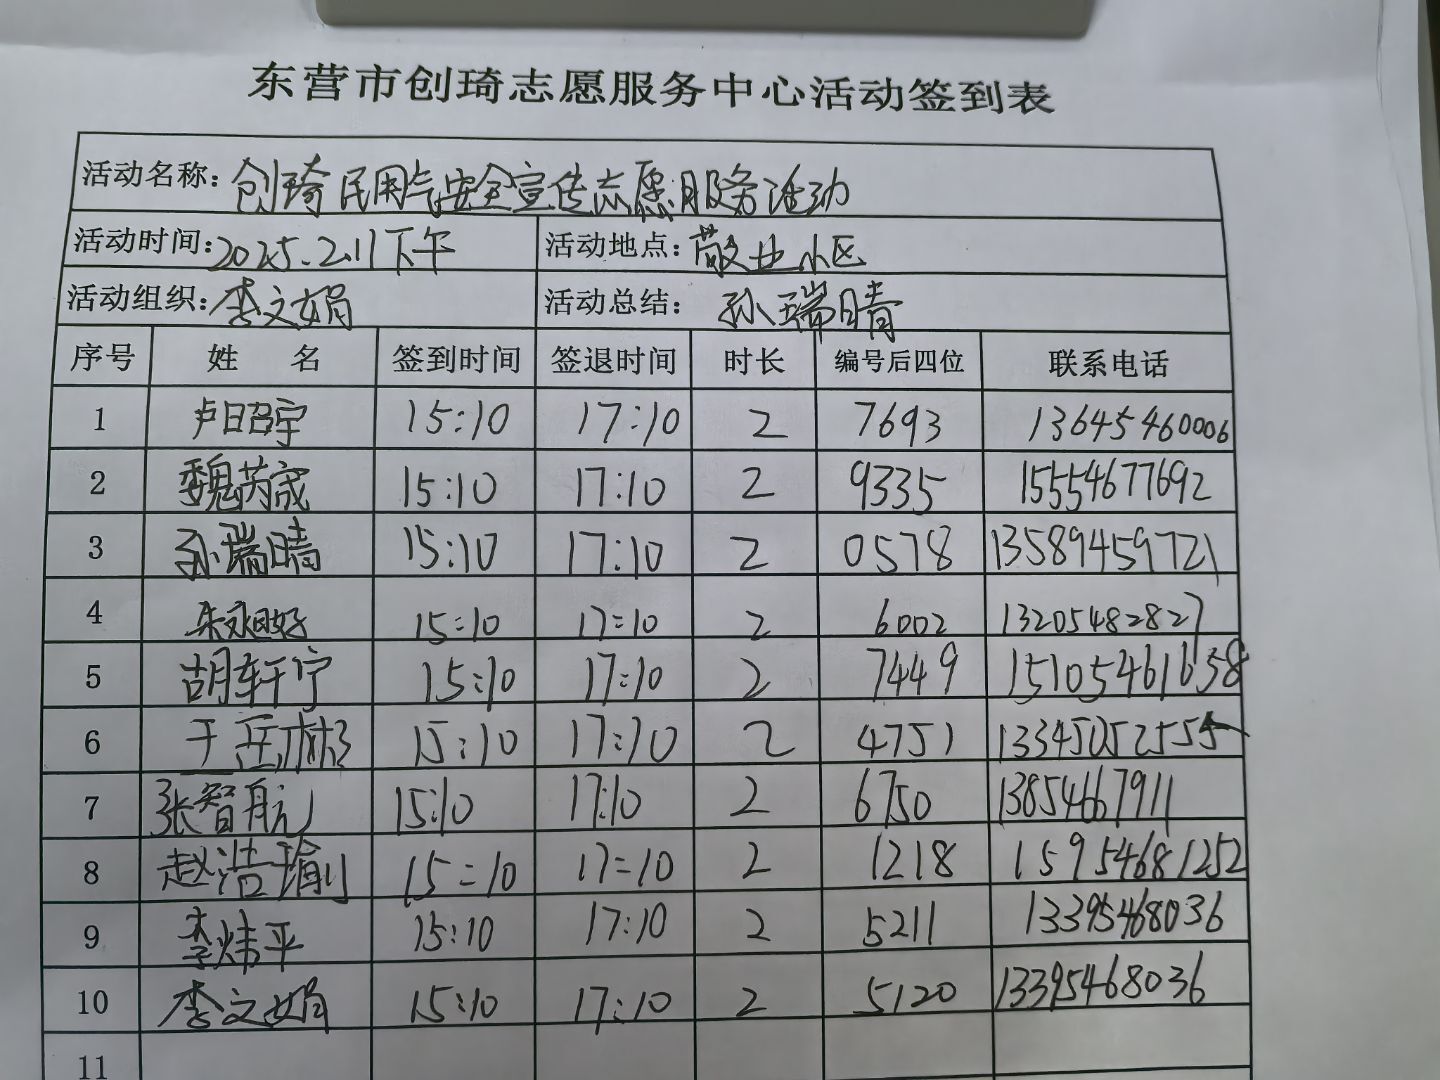 东营市创琦志愿服务中心活动签到表
活动名称：创琦民用气安全宣传志愿服务活动
活动时间：2025.2.11下午 活动地点：敬业小区
活动组织：李文娟 活动总结：孙瑞晴
序号 姓名 签到时间 签退时间 时长 编号后四位 联系电话
1 卢日召宇 15:10 17:10 2 7693 13645460006
2 魏芮晟 15:10 17:10 2 9335 15554677692
3 孙瑞晴 15:10 17:10 2 0578 13589459721
4 15:10 17:10 2 6002 13205482827
5 胡轩宁 15:10 17:10 2 7449 15105461638
6 于岳彬 15:10 17:10 2 4751
7 张智航 15:10 17:10 2 6750 13854667911
8 赵浩瑜 15:10 17:10 2 1218 15954681252
9 李炜平 15:10 17:10 2 5211 13395468036
10 李文娟 15:10 17:10 2 5120 13395468036
11